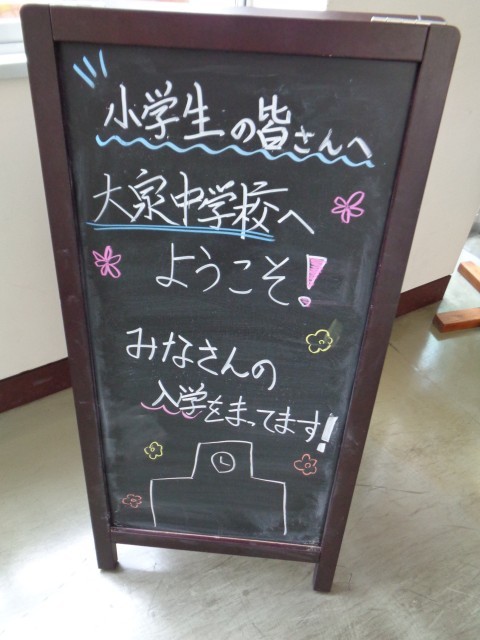 小学生の皆さんへ
大泉中学校へ
ようこそ!
みなさんの
入学をまってます!